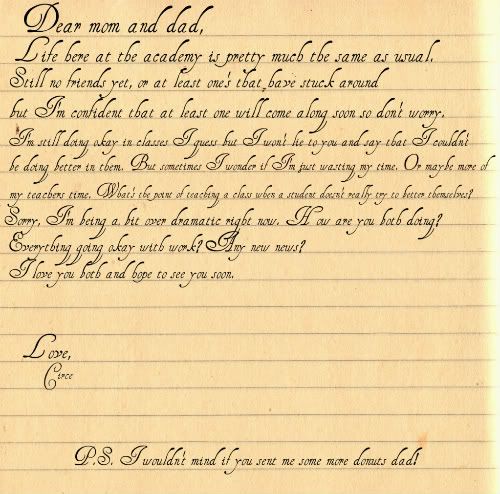 Dear mom and dad,
Life here at the academy is pretty much the same as usual.
Still no friends yet, or at least one's that have stuck around
but I'm confident that at least one will come along soon so don't worry.
I'm still doing okay in classes I guess but I won't lie to you and say that I couldn't
be doing better in them. But sometimes I wonder if I'm just wasting my time. Or maybe more of
my teachers time. What's the point of teaching a class when a student doesn't really try to better themselves?
Sorry, I'm being a bit over dramatic right now. How are you both doing?
Everything going okay with work? Any new news?
I love you both and hope to see you soon.
Love,
Circe
P.S. I wouldn't mind if you sent me some more donuts dad!